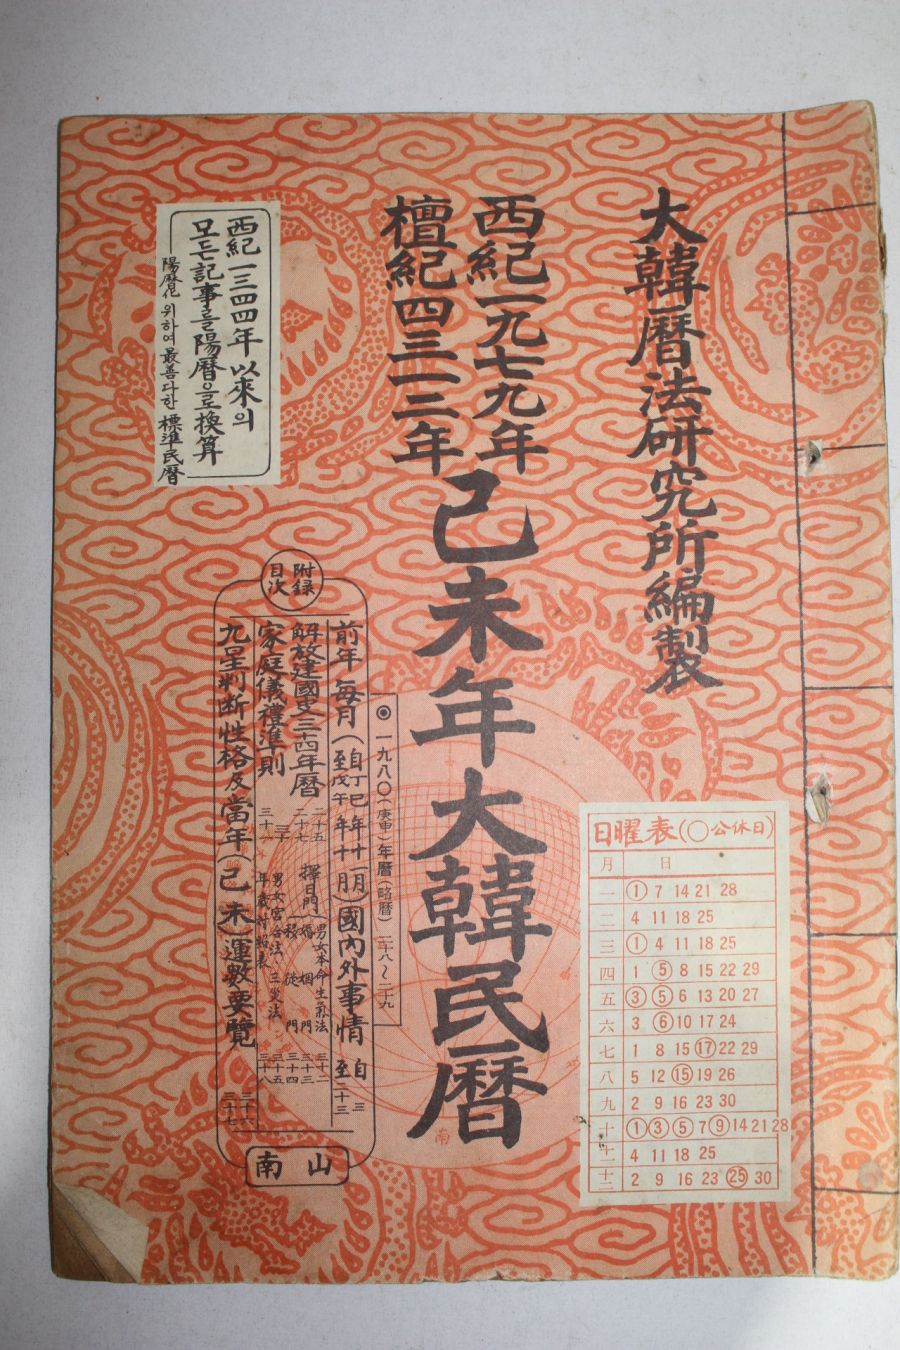 大韓曆法研究所編製
西紀一九七九年
檀紀四三一二年
己未年大韓民曆
西紀一三四四年以來의
모든記事를陽曆으로換算
陽曆化위하여最善다한標準民曆
附錄
目次
◉一九八〇(庚申)年曆(略曆)二八~二九
前年每月(自丁巳年十一月
至戊午年十月)國內外事情 自三
至二十三
解放建國史三十四年曆 二十五
二十七
擇日門
男女本命生氣法 三十二
婚姻門 三十三
移徙門 三十四
家庭儀禮準則 三十
三十一
男女宮合法、三災法 三十五
年歲對照表 三十八
九星判断性格及當年(己未)運數要覽 三十六
三十七
南山
日曜表(〇公休日)
月 日
一 ① 7 14 21 28
二 4 11 18 25
三 ① 4 11 18 25
四 1 ⑤ 8 15 22 29
五 ③ ⑤ 6 13 20 27
六 3 ⑥ 10 17 24
七 1 8 15 ⑰ 22 29
八 5 12 ⑮ 19 26
九 2 9 16 23 30
十 ① ③ ⑤ 7 ⑨ 14 21 28
十一 4 11 18 25
十二 2 9 16 23 ㉕ 30
南